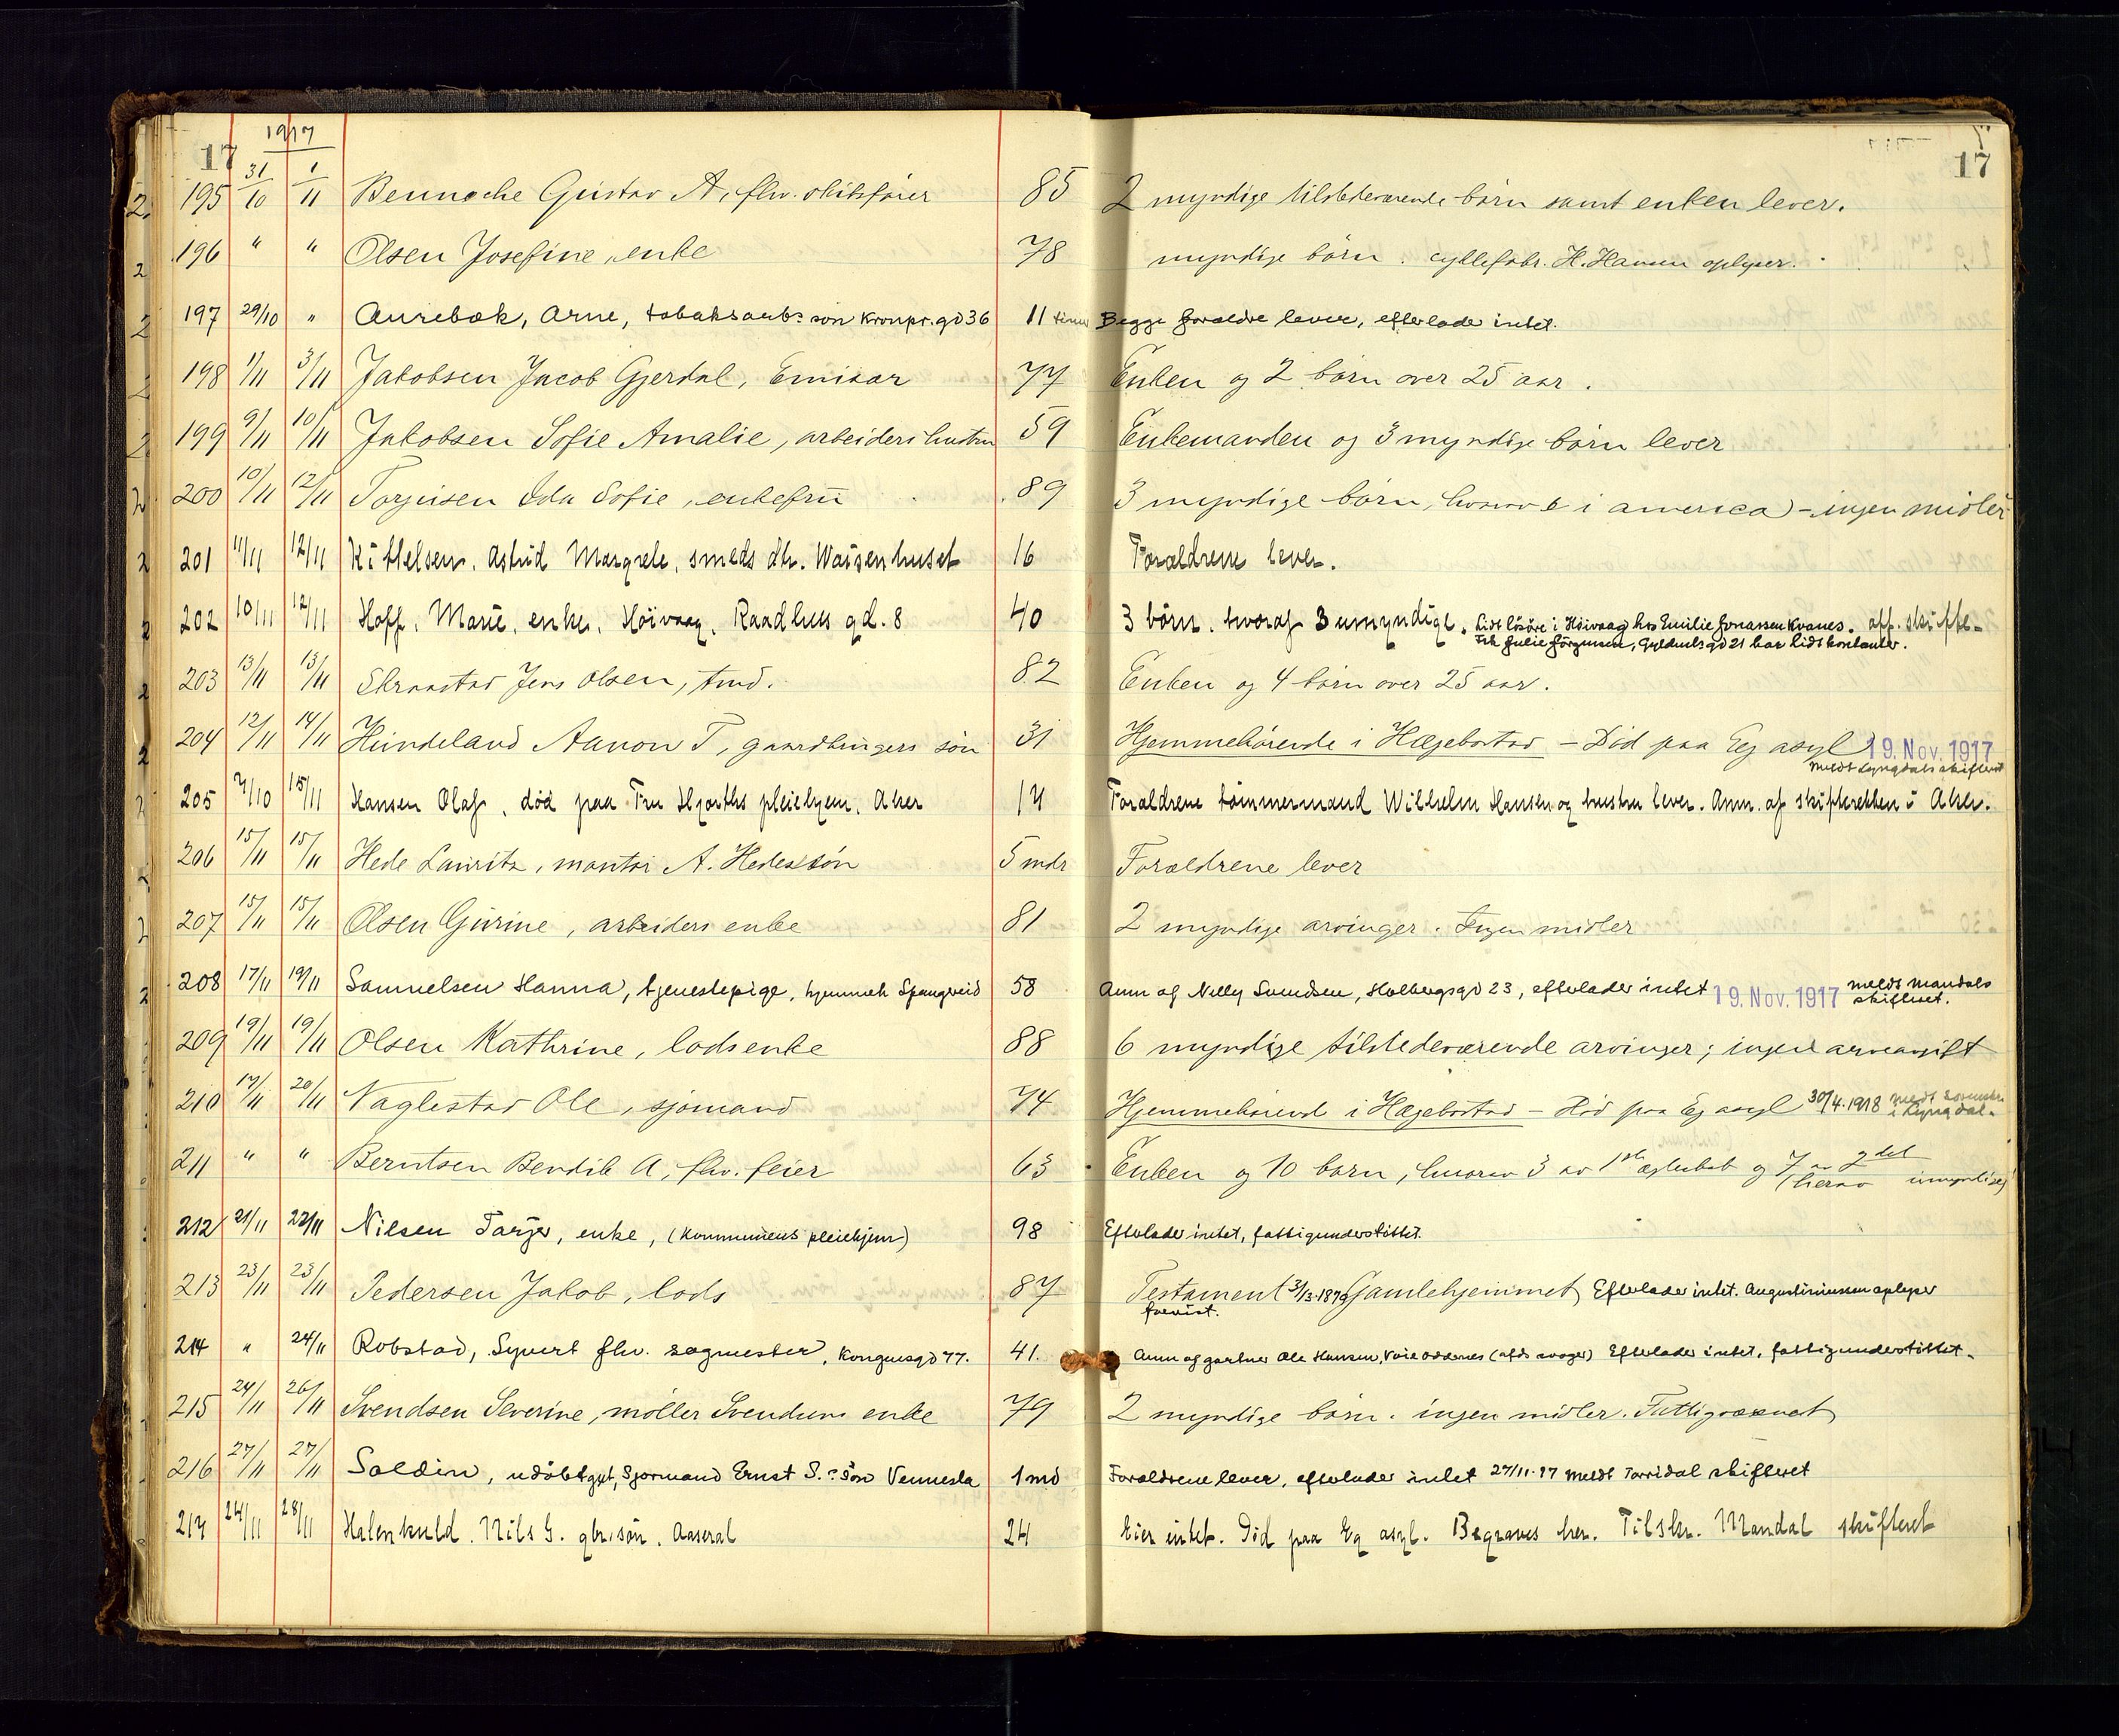 1917
17
17
195 31/10 1/11 Benneche Gustav A, fhv. skibsfører 85 2 myndige tilstedeværende børn samt enken lever.
196 " " Olsen Josefine, enke 78 myndige børn. cyllefabr. H. Hansen oplyser.
197 29/10 " Aurebæk, Arne, tobaksarb.s søn Kronpr. gd 36 11 timer Begge foraldre lever, efterlader intet.
198 1/11 3/11 Jakobsen Jacob Gjerdal, Emisær 77 Enken og 2 børn over 25 aar.
199 9/11 10/11 Jakobsen Sofie Amalie, arbeiders hustru 59 Enkemanden og 3 myndige børn lever
200 10/11 12/11 Torjusen Ida Sofie, enkefru 89 3 myndige børn, hvorav i america) - ingen midler
201 11/11 12/11 Kittelsen, Astrid Margrete, smeds dtr. Waisenhuset 16 Foraldrene lever.
202 10/11 12/11 Hoff, Marie, enke, Höivaag, Raadhus gd. 8 40 3 börn, hvoraf 3 umyndige. Lidt lösöre i Höivaag hos Emilie Jonassen Kvanes. off. skifte-
Frk Julie Jörgensen, Gyldenlsgd 21 har lidt kontanter.
203 13/11 13/11 Skraastad Jens Olsen, tmd. 82 Enken og 4 børn over 25 aar.
204 12/11 14/11 Hundeland Aanon T, gaardbrugers søn 31 Hjemmehørende i Hægebostad - Död paa Eg asyl 19. Nov. 1917
meldt Lyngdals skifteret
205 7/10 15/11 Hansen Olaf, död paa Fru Hjorths pleiehjem, Aker 14 Foraldrene tömmermand Wilhelm Hansen og hustru lever. Anm. af skifteretten i Aker.
206 15/11 15/11 Hede Lauritz, montør A. Hedes søn 5 mdr Foraldrene lever
207 15/11 15/11 Olsen Gurine, arbeiders enke 81 2 myndige arvinger. Ingen midler
208 17/11 19/11 Samuelsen Hanna, tjenestepige, hjemmeh Spangreid 58 Anm af Nelly Svendsen, Holbergsgd 23, efterlader intet 19. Nov. 1917 meldt Mandals
skifteret.
209 19/11 19/11 Olsen Kathrine, lods enke 88 6 myndige tilstedeværende arvinger; ingen arveavgift
210 17/11 20/11 Naglestad Ole, sjømand 74 Hjemmehørende i Hægebostad - Död paa Eg asyl 30/4.1918 meldt
i Lyngdal.
211 " " Berntsen Bendik A, fhv. feier 63 Enken og 10 børn, hvorav 3 av 1ste ægteskab og 7 av 2det
(herav umyndige)
212 21/11 22/11 Nilsen Tarjer, enke, (Kommunens pleiehjem) 98 Efterlader intet, fattigunderstöttet.
213 23/11 23/11 Pedersen Jakob, lods 87 Testament 3/13.1879 Gamlehjemmet, Efterlader intet. Augustinussen oplyser
forvist.
214 " 24/11 Robstad, Syvert fhv. sagmester, Kongensgd 77. 41. Anm af gartner Ole Hansen, Voie Oddernes (afds svoger) Efterlader intet, fattigunderstöttet.
215 24/11 26/11 Svendsen Severine, møller Svendsens enke 79 2 myndige børn. ingen midler. Fattigvæsenet
216 27/11 27/11 Saldin, udöbt gut, Sjømand Ernst S.s Sön Vennesla 1 md Foraldrene lever, efterlader intet 27/11.17 meldt Torridal skifteret
217 24/11 28/11 Halenkuld, Nils G. gbr. sön, Aaseral 24 Eier intet. Död paa Eg asyl. Begraves her. Tilskr. Mandal skifteret